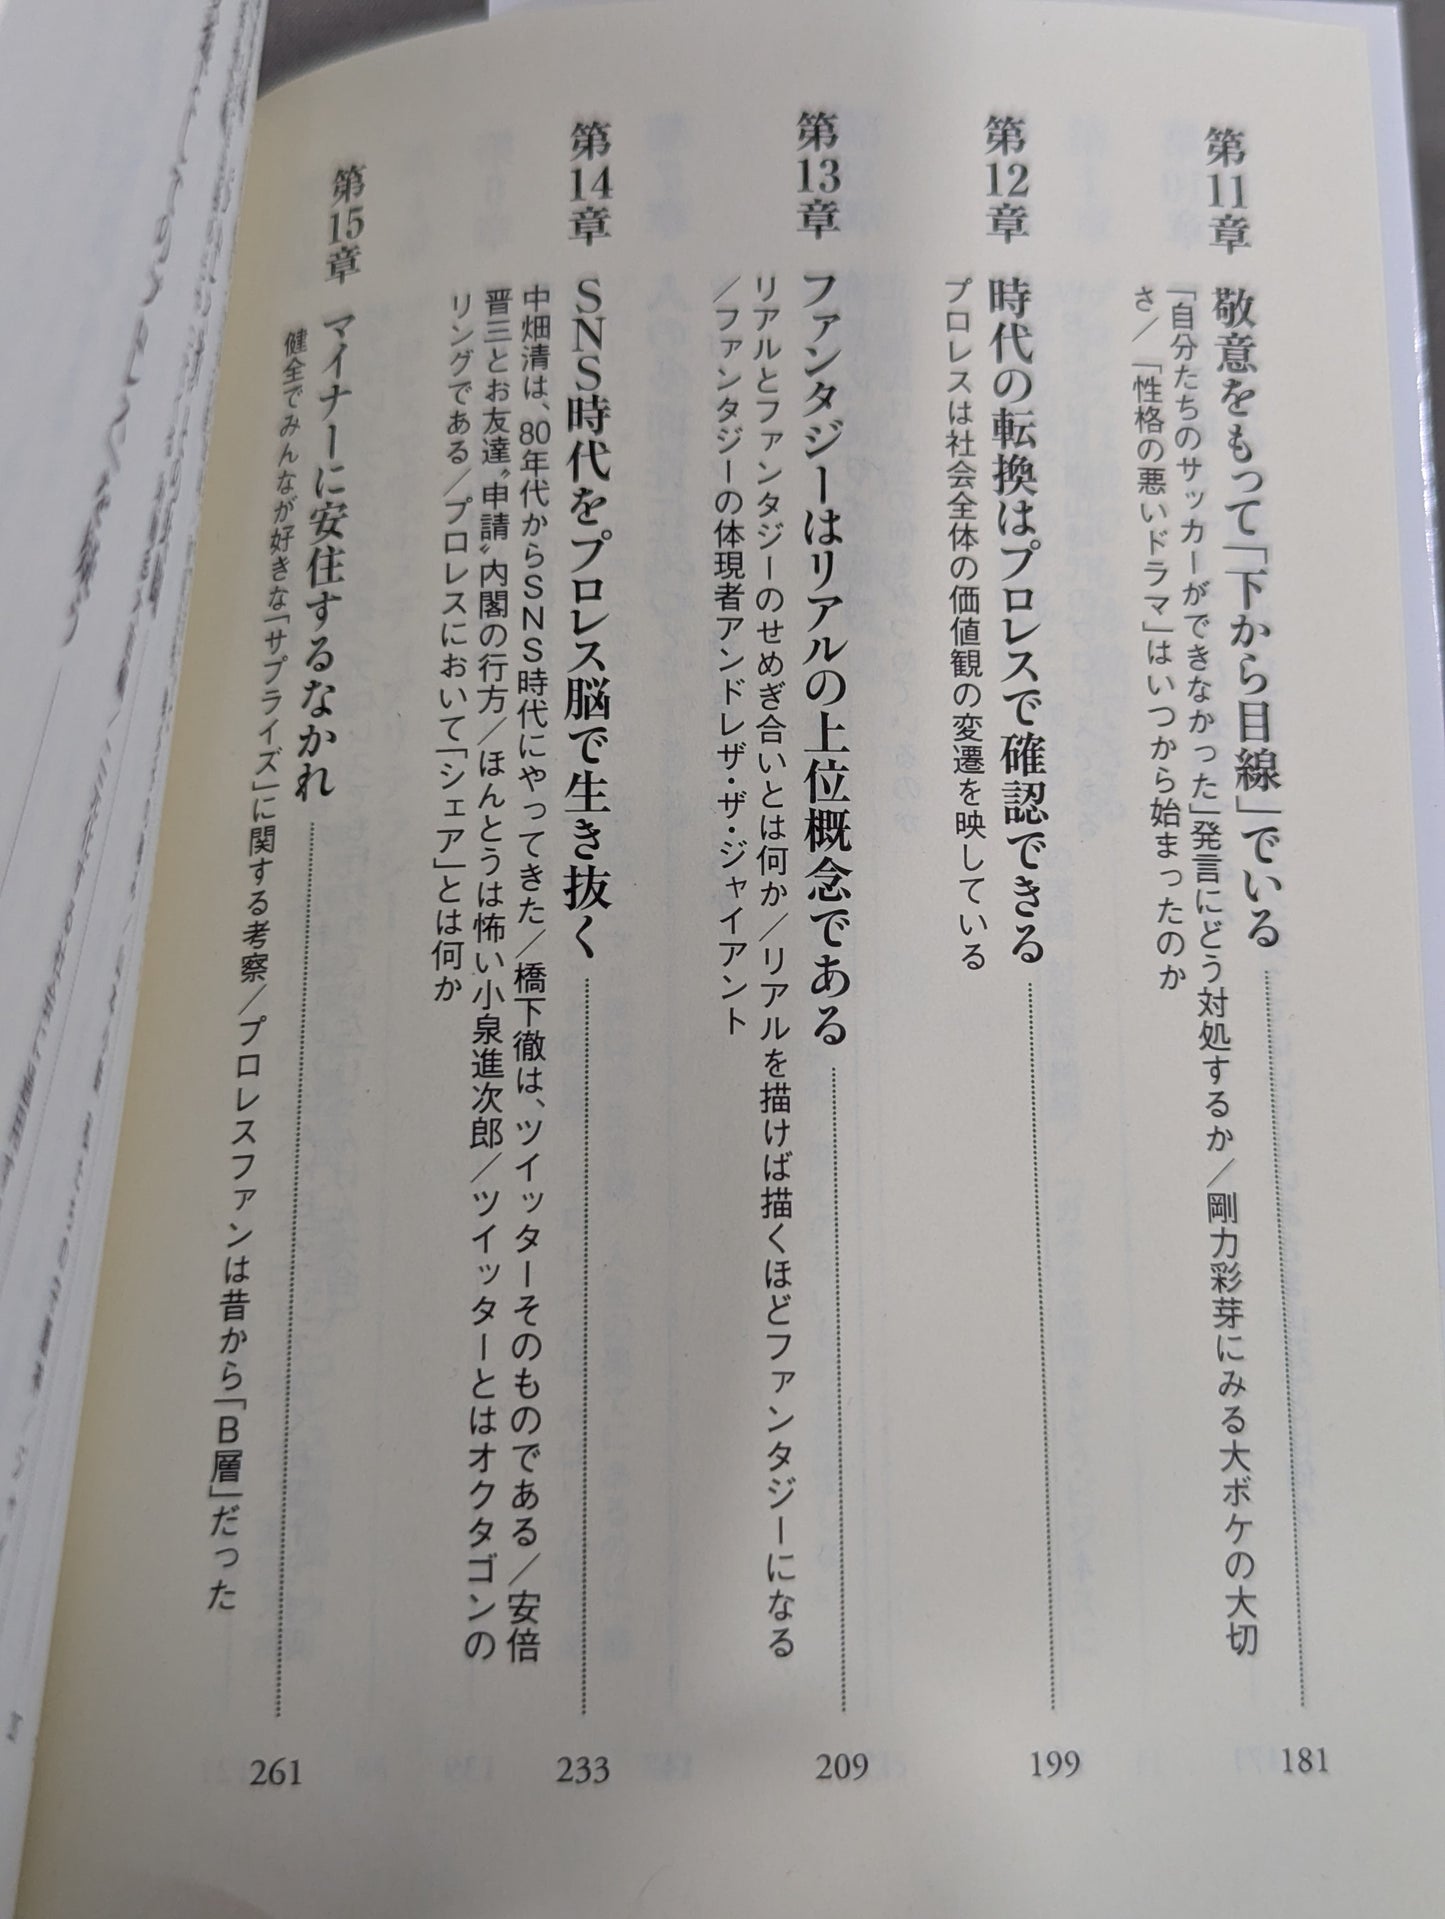 第11章 敬意をもって「下から目線」でいる 181
「自分たちのサッカーができなかった」発言にどう対処するか／剛力彩芽にみる大ボケの大切
さ／「性格の悪いドラマ」はいつから始まったのか
第12章 時代の転換はプロレスで確認できる 199
プロレスは社会全体の価値観の変遷を映している
第13章 ファンタジーはリアルの上位概念である 209
リアルとファンタジーのせめぎ合いとは何か／リアルを描けば描くほどファンタジーになる
／ファンタジーの体現者アンドレ・ザ・ジャイアント
第14章 SNS時代をプロレス脳で生き抜く 233
中畑清は、80年代からSNS時代にやってきた／橋下徹は、ツイッターそのものである／安倍
晋三とお友達〝申請〟内閣の行方／ほんとうは怖い小泉進次郎／ツイッターとはオクタゴンの
リングである／プロレスにおいて「シェア」とは何か
第15章 マイナーに安住するなかれ 261
健全でみんなが好きな「サプライズ」に関する考察／プロレスファンは昔から「B層」だった